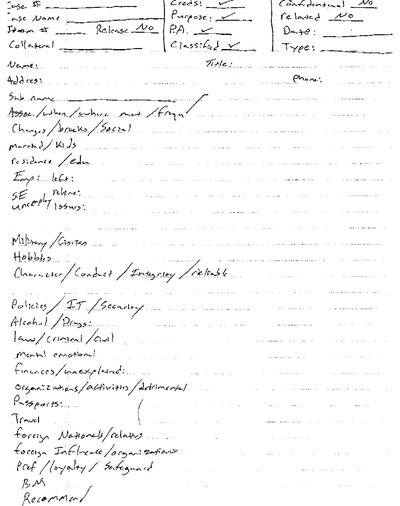 Case #
Creds: ✓
Confidential No
Case Name
Purpose: ✓
related No
Item #
Release No
P.A. ✓
Date:
Collateral
Classified ✓
Type:
Name:
Title:
Address:
Phone:
Sub name
Assoc./when/where met/frequ
Changes/breaks/Social
married/kids
residence/edu
Emp: left:
SE
unemploy Issues:
Military/Citizen
Hobbies
Character/Conduct/Integrity/reliable
Policies/IT/Security
Alcohol/Drugs:
law/criminal/civil
mental emotional
finances/unexplained:
organizations/activities/detrimental
Passports:
Travel
foreign Nationals/relatives
foreign Influence/organizations
Pref/loyalty/Safeguard
BM
Recommend